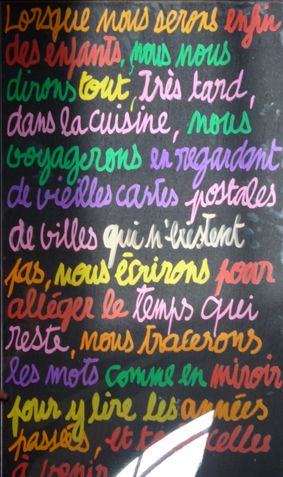 Lorsque nous serons enfin
des enfants, nous nous
dirons tout, Très tard,
dans la cuisine, nous
voyagerons en regardant
de vieilles cartes postales
de villes qui n'existent
pas, nous écrirons pour
alléger le temps qui
reste, nous tracerons
les mots comme en miroir
pour y lire les années
passées, et celles
à venir